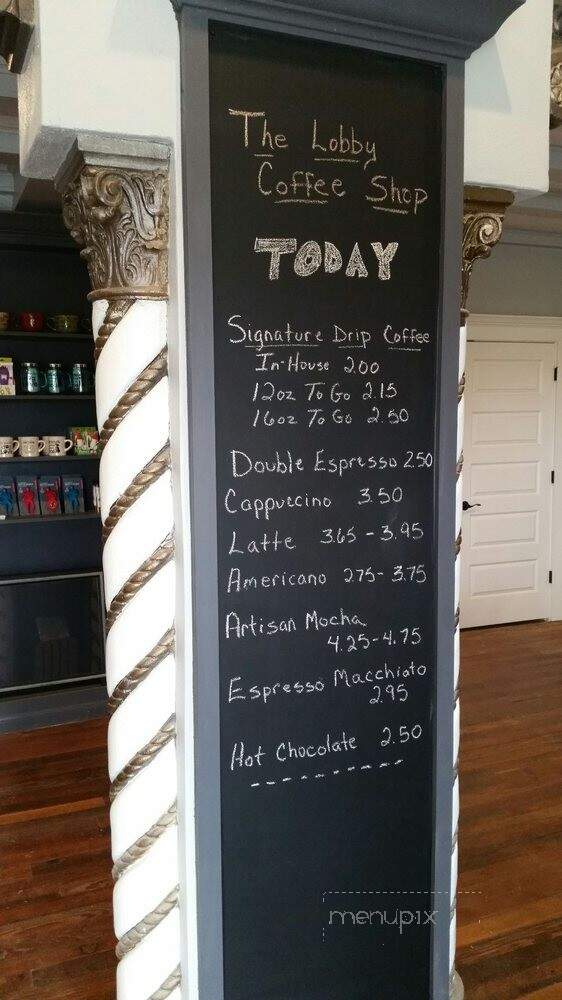 The Lobby
Coffee Shop
TODAY
Signature Drip Coffee
In-House 2.00
12oz To Go 2.15
16oz To Go 2.50
Double Espresso 2.50
Cappuccino 3.50
Latte 3.65 - 3.95
Americano 2.75 - 3.75
Artisan Mocha
4.25 - 4.75
Espresso Macchiato
2.95
Hot Chocolate 2.50
menupix